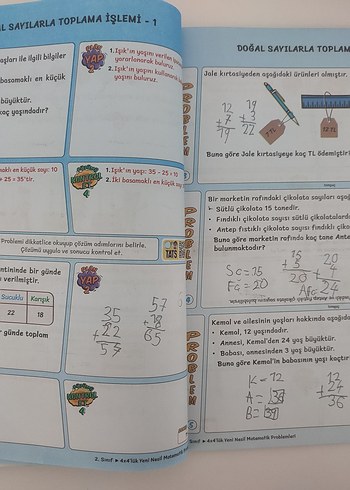 AL SAYILARLA TOPLAMA İŞLEMİ - 1
aşları ile ilgili bilgiler
basamaklı en küçük
büyüktür.
kaç yaşındadır?
YAP
1. Işık'ın yaşını verilen
yararlanarak buluruz.
2. Işık'ın yaşını kullanarak
yaşını buluruz.
maklı en küçük sayı: 10
+ 25 = 35'tir.
1. Işık'ın yaşı: 35 - 25 = 10
2. İki basamaklı en küçük sayı
Problemi dikkatlice okuyup çözüm adımlarını belirle.
Çözümü uygula ve sonucu kontrol et.
TATS
antininde bir günde
verilmiştir.
Sucuklu Karışık
22 18
günde toplam
YAP
35
+ 22
57
57
+ 18
65
2. Sınıf ▶ 4x4'lük Yeni Nesil Matematik Problemleri
DOĞAL SAYILARLA TOPLAM
PROBLEM
Jale kırtasiyeden aşağıdaki ürünleri almıştır.
12
+ 7
19
19
+ 3
22
7 TL
12 TL
Buna göre Jale kırtasiyeye kaç TL ödemiştir
PROBLEM
Bir marketin rafındaki çikolata sayıları aşağı
Sütlü çikolata 15 tanedir.
Fındıklı çikolata sayısı sütlü çikolatalarda
Antep fıstıklı çikolata sayısı fındıklı çiko
Buna göre marketin rafında kaç tane Ante
bulunmaktadır?
Sç=15
Fç=20
15
+ 5
20
20
+ 4
24
Aç=24
PROBLEM
Kemal ve ailesinin yaşları hakkında aşağıda
Kemal, 12 yaşındadır.
Annesi, Kemal'den 24 yaş büyüktür.
Babası, annesinden 3 yaş büyüktür.
Buna göre Kemal'in babasının yaşı kaçtır
K = 12
A =
B =
12
+ 24
36
2. Sınıf ▶ 4x4'lük Yeni Nesil Matematik Problemleri